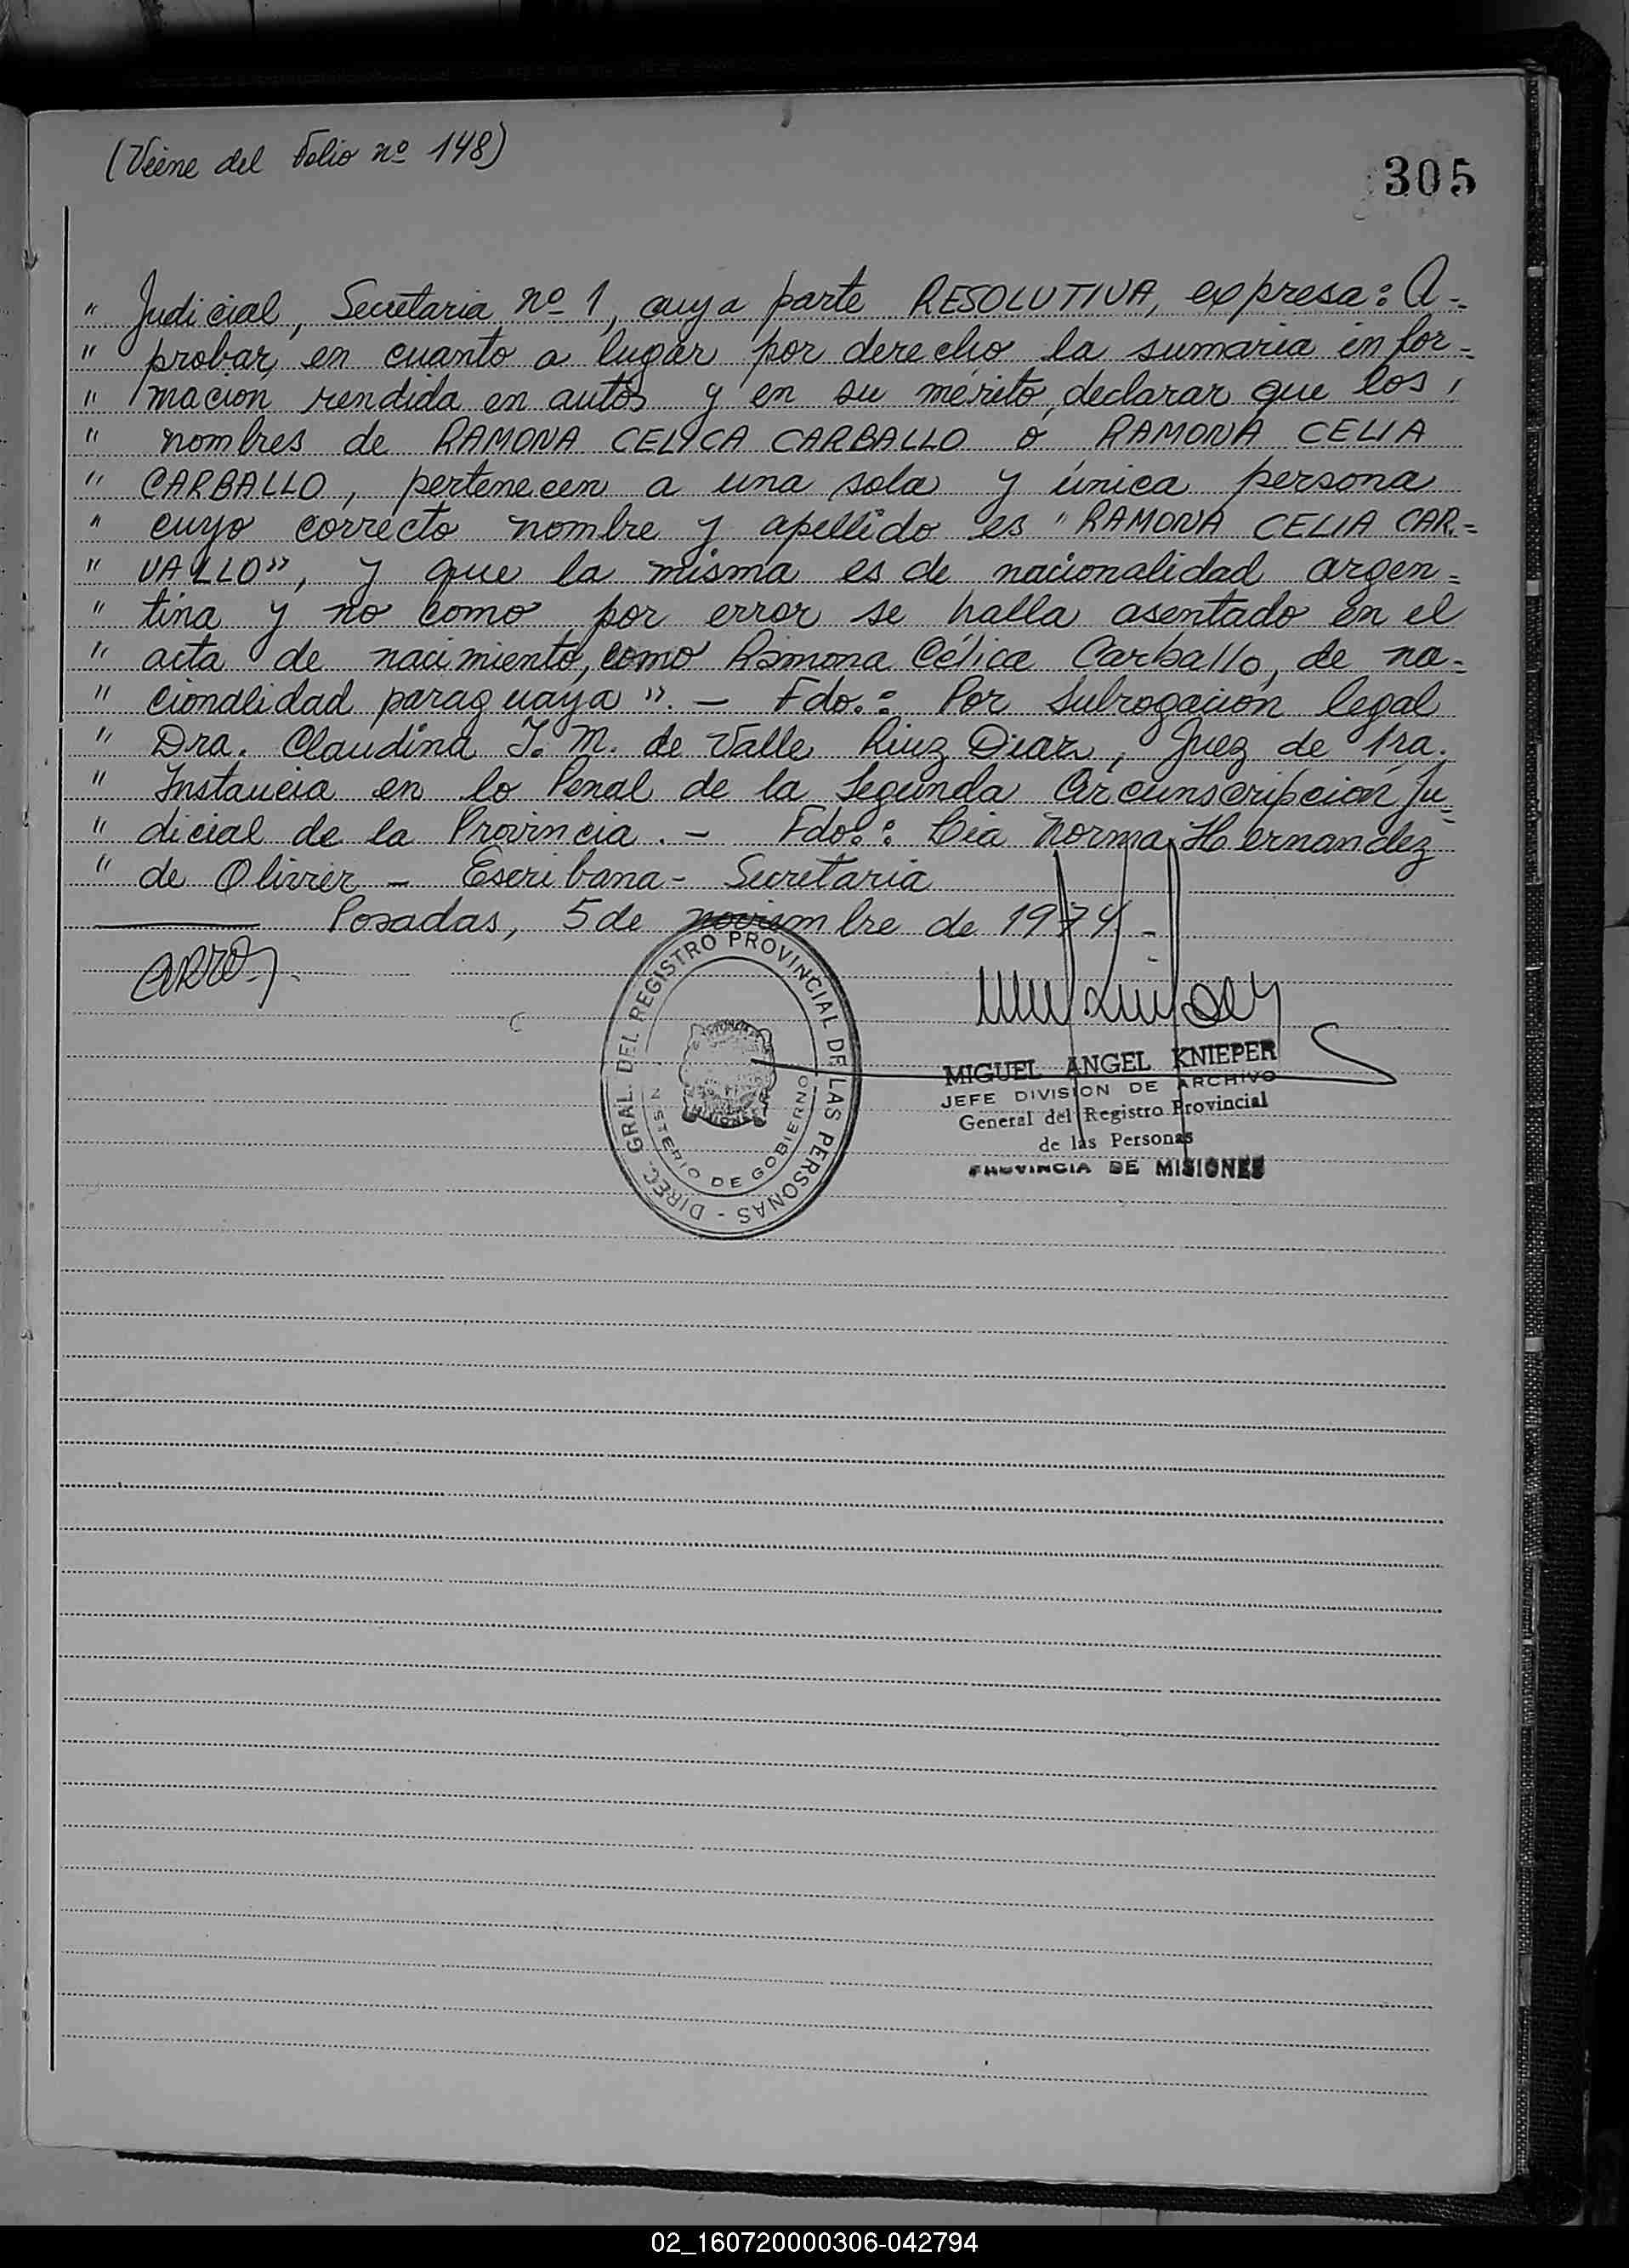 (Viene del Folio nº 148)
305
" Judicial, Secretaria nº 1, cuya parte RESOLUTIVA, expresa: A-
" probar, en cuanto a lugar por derecho la sumaria infor-
" macion rendida en autos y en su mérito, declarar que los
" nombres de RAMONA CELICA CARBALLO o RAMONA CELIA
" CARBALLO, pertenecen a una sola y única persona
" cuyo correcto nombre y apellido es "RAMONA CELIA CAR=
" VALLO", y que la misma es de nacionalidad argen=
" tina y no como por error se halla asentado en el
" acta de nacimiento, como Ramona Célica Carballo, de na=
" cionalidad paraguaya". - Fdo.: Por subrogación legal
" Dra. Claudina T. M. de Valle Ruiz Diaz, Juez de 1ra.
" Instancia en lo Penal de la Segunda Circunscripción Ju=
" dicial de la Provincia. - Fdo.: Lia Norma Hernandez
" de Olivier - Escribana - Secretaria
Posadas, 5 de noviembre de 1974.-
DIREC. GRAL. DEL REGISTRO PROVINCIAL DE LAS PERSONAS -
NISTERIO DE GOBIERNO
MISIONES
MIGUEL ANGEL KNIEPER
JEFE DIVISION DE ARCHIVO
General del Registro Provincial
de las Personas
PROVINCIA DE MISIONES
02_160720000306-042794